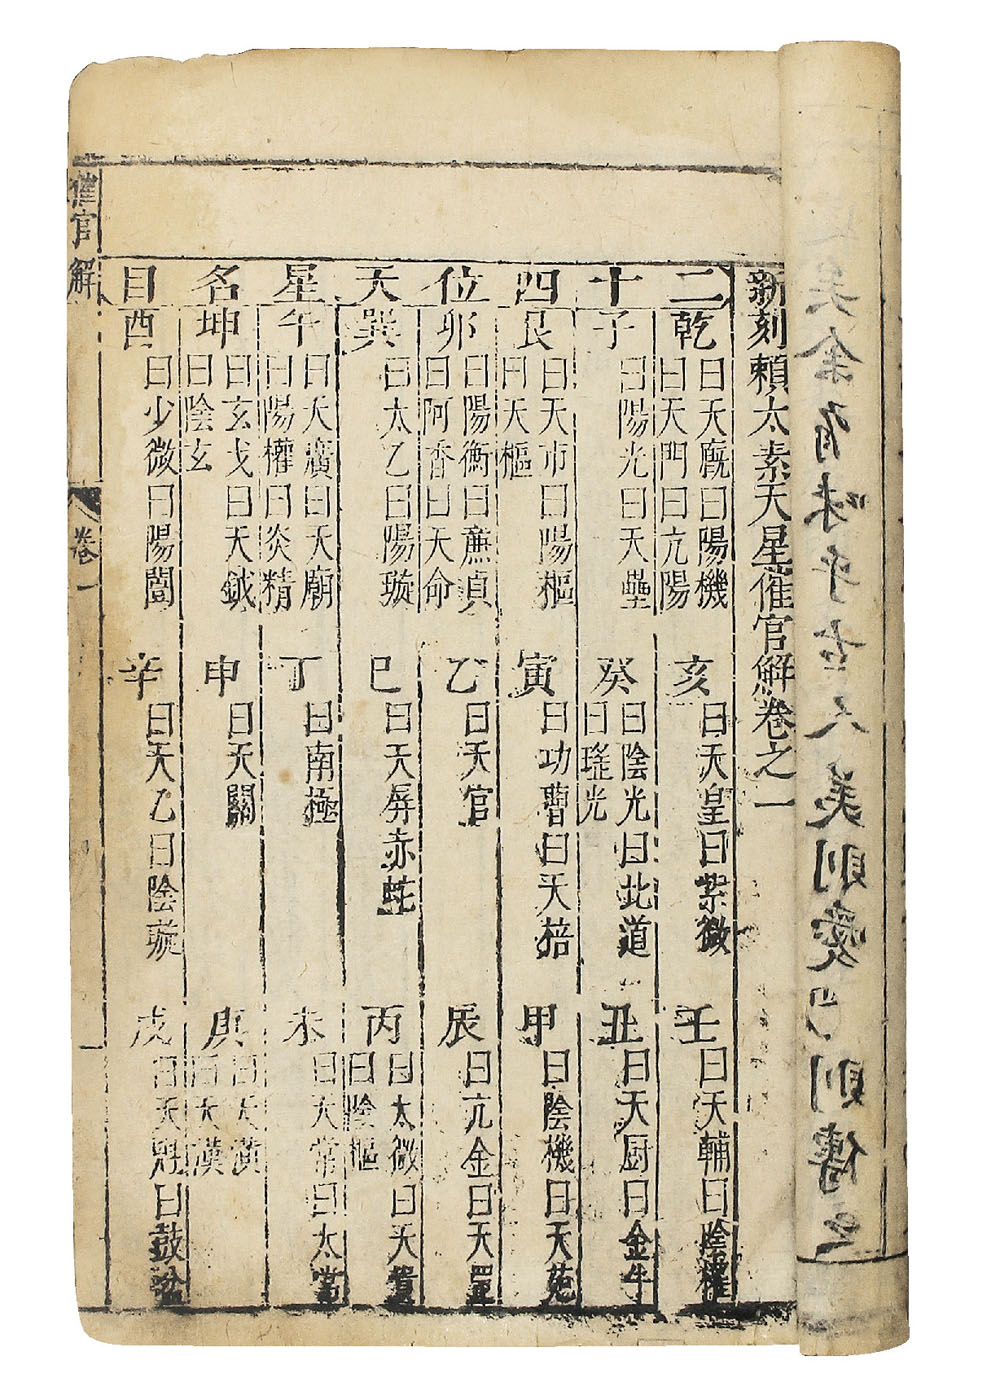 矣余有味乎古人美則愛
則傳之
新刻賴太素天星催官解卷之一
二十四位天星名目
乾 曰天廐曰陽機
曰天門曰亢陽
亥 曰天皇曰紫微
壬 曰天輔曰陰權
子 曰陽光曰天壘
癸 曰陰光曰北道
曰瑤光
丑 曰天厨曰金牛
艮 曰天市曰陽樞
曰天樞
寅 曰功曹曰天棓
甲 曰陰機曰天苑
卯 曰陽衡曰廉貞
曰阿香曰天命
乙 曰天官
辰 曰亢金曰天罡
巽 曰太乙曰陽璇
巳 曰天屏赤蛇
丙 曰太微曰天貴
曰陰樞
午 曰大廣曰天廟
曰陽權曰炎精
丁 曰南極
未 曰天常曰太常
坤 曰玄戈曰天鉞
曰陰玄
申 曰天關
庚 曰天潢
曰天漢
酉 曰少微曰陽闓
辛 曰天乙曰陰璇
戌 曰天魁曰鼓盆
催官解
卷一
一